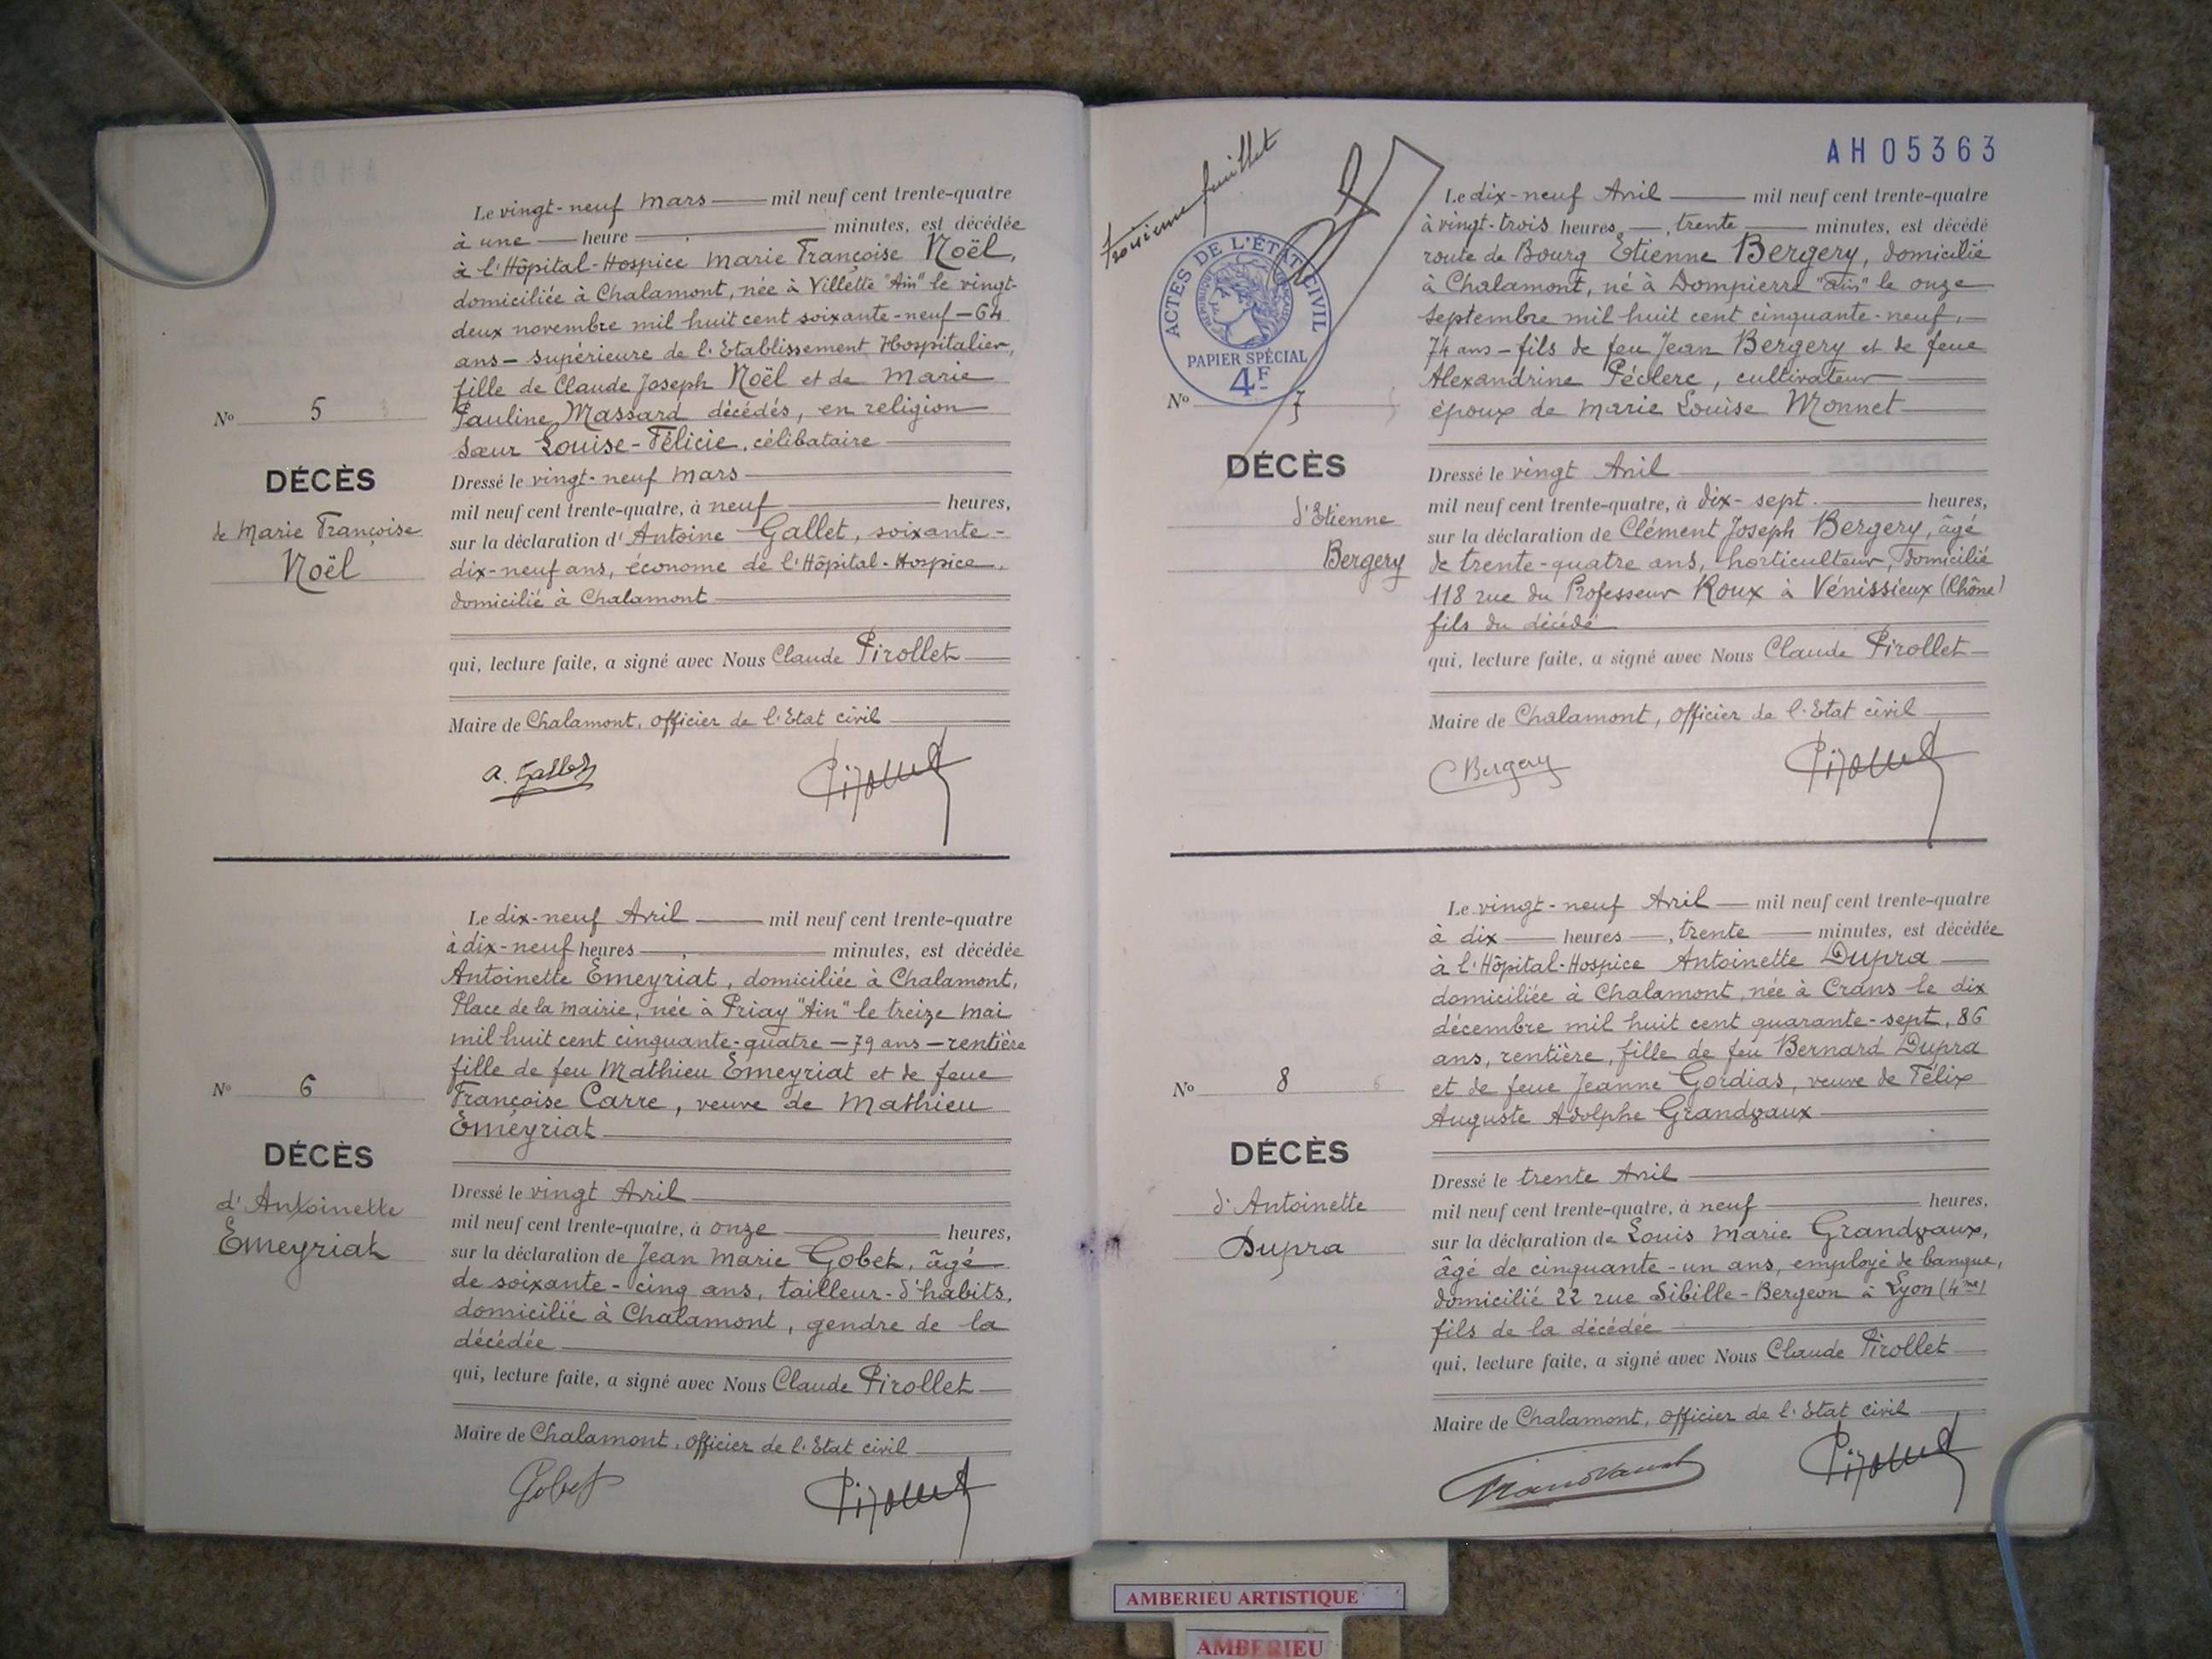 Le vingt-neuf Mars mil neuf cent trente-quatre
à une heure minutes, est décédée
à l'Hôpital-Hospice Marie Françoise Noël,
domiciliée à Chalamont, née à Villette "Ain" le vingt-
deux novembre mil huit cent soixante-neuf - 64
ans - supérieure de l'Etablissement Hospitalier,
fille de Claude Joseph Noël et de Marie
Pauline Massard décédés, en religion
Sœur Louise-Félicie, célibataire
Nº 5
DÉCÈS
de Marie Françoise
Noël
Dressé le vingt-neuf Mars
mil neuf cent trente-quatre, à neuf heures,
sur la déclaration d'Antoine Gallet, soixante-
dix-neuf ans, économe de l'Hôpital-Hospice,
domicilié à Chalamont
qui, lecture faite, a signé avec Nous Claude Pirollet
Maire de Chalamont, officier de l'Etat civil
A. Gallet
Pirollet
Le dix-neuf Avril mil neuf cent trente-quatre
à dix-neuf heures minutes, est décédée
Antoinette Emeyriat, domiciliée à Chalamont,
Place de la Mairie, née à Priay "Ain" le treize Mai
mil huit cent cinquante-quatre - 79 ans - rentière
fille de feu Mathieu Emeyriat et de feue
Françoise Carre, veuve de Mathieu
Emeyriat
Nº 6
DÉCÈS
d'Antoinette
Emeyriat
Dressé le vingt Avril
mil neuf cent trente-quatre, à onze heures,
sur la déclaration de Jean Marie Gobet, âgé
de soixante-cinq ans, tailleur-d'habits,
domicilié à Chalamont, gendre de la
décédée
qui, lecture faite, a signé avec Nous Claude Pirollet
Maire de Chalamont, officier de l'Etat civil
Gobet
Pirollet
AH05363
feuillet
ACTES DE L'ÉTAT CIVIL
RÉPUBLIQUE FRANÇAISE
PAPIER SPÉCIAL
4F
Le dix-neuf Avril mil neuf cent trente-quatre
à vingt-trois heures, trente minutes, est décédé
route de Bourg Etienne Bergery, domicilié
à Chalamont, né à Dompierre "Ain" le onze
septembre mil huit cent cinquante-neuf,
74 ans - fils de feu Jean Bergery et de feue
Alexandrine Péclerc, cultivateur
époux de Marie Louise Monnet
Nº 7
DÉCÈS
d'Etienne
Bergery
Dressé le vingt Avril
mil neuf cent trente-quatre, à dix-sept heures,
sur la déclaration de Clément Joseph Bergery, âgé
de trente-quatre ans, horticulteur, domicilié
118 rue du Professeur Roux à Vénissieux (Rhône)
fils du décédé
qui, lecture faite, a signé avec Nous Claude Pirollet
Maire de Chalamont, officier de l'Etat civil
C Bergery
Pirollet
Le vingt-neuf Avril mil neuf cent trente-quatre
à dix heures, trente minutes, est décédée
à l'Hôpital-Hospice Antoinette Dupra
domiciliée à Chalamont, née à Crans le dix
décembre mil huit cent quarante-sept, 86
ans, rentière, fille de feu Bernard Dupra
et de feue Jeanne Gordias, veuve de Félix
Auguste Adolphe Grandvaux
Nº 8
DÉCÈS
d'Antoinette
Dupra
Dressé le trente Avril
mil neuf cent trente-quatre, à neuf heures,
sur la déclaration de Louis Marie Grandvaux,
âgé de cinquante-un ans, employé de banque,
domicilié 22 rue Sibille-Bergeon à Lyon (4me)
fils de la décédée
qui, lecture faite, a signé avec Nous Claude Pirollet
Maire de Chalamont, officier de l'Etat civil
Grandvaux
Pirollet
AMBERIEU ARTISTIQUE
AMBERIEU